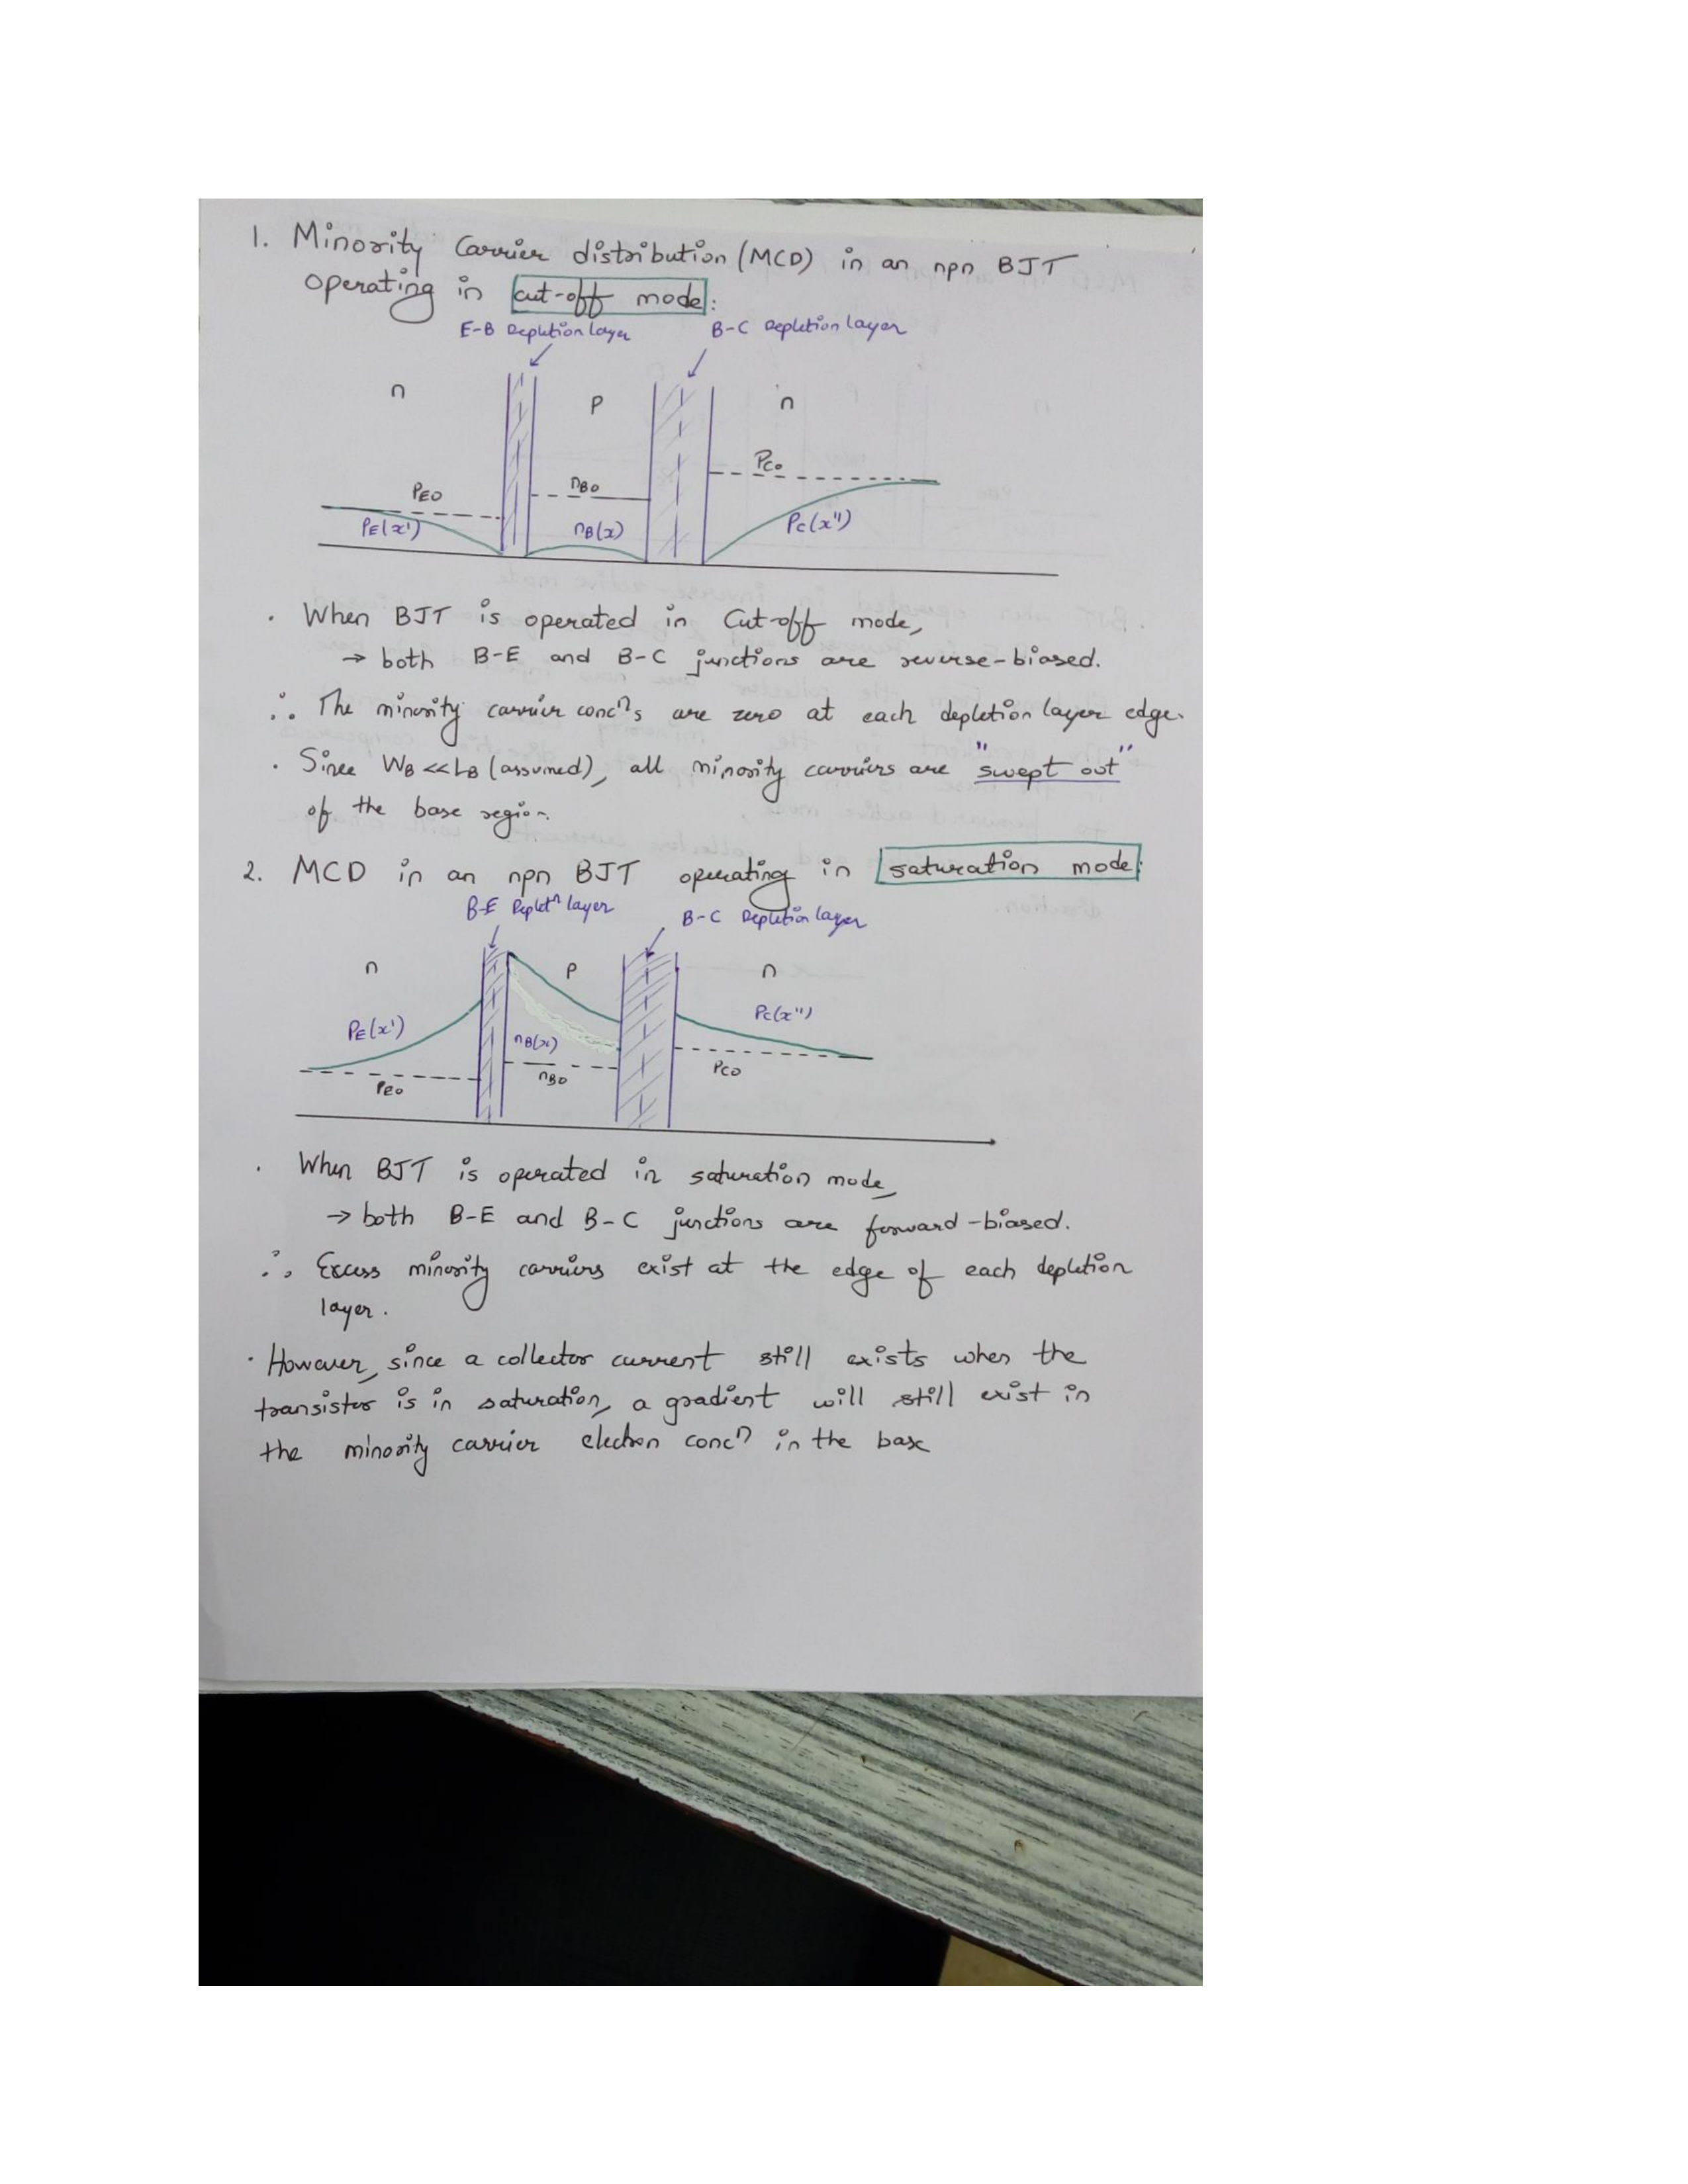 1. Minority Carrier distribution (MCD) in an npn BJT
operating in cut-off mode:
E-B Depletion layer
B-C Depletion layer
n
p
n
PEO
nBO
PCO
PE(x')
nB(x)
PC(x")
. When BJT is operated in Cut-off mode,
→ both B-E and B-C junctions are reverse-biased.
∴ The minority carrier concⁿs are zero at each depletion layer edge.
. Since WB <<LB (assumed), all minority carriers are "swept out"
of the base region.
2. MCD in an npn BJT operating in saturation mode:
B-E Depletⁿ layer
B-C Depletion layer
n
p
n
PE(x')
nB(x)
PC(x")
PEO
nBO
PCO
. When BJT is operated in saturation mode,
→ both B-E and B-C junctions are forward-biased.
∴ Excess minority carriers exist at the edge of each depletion
layer.
. However, since a collector current still exists when the
transistor is in saturation, a gradient will still exist in
the minority carrier electron concⁿ in the base